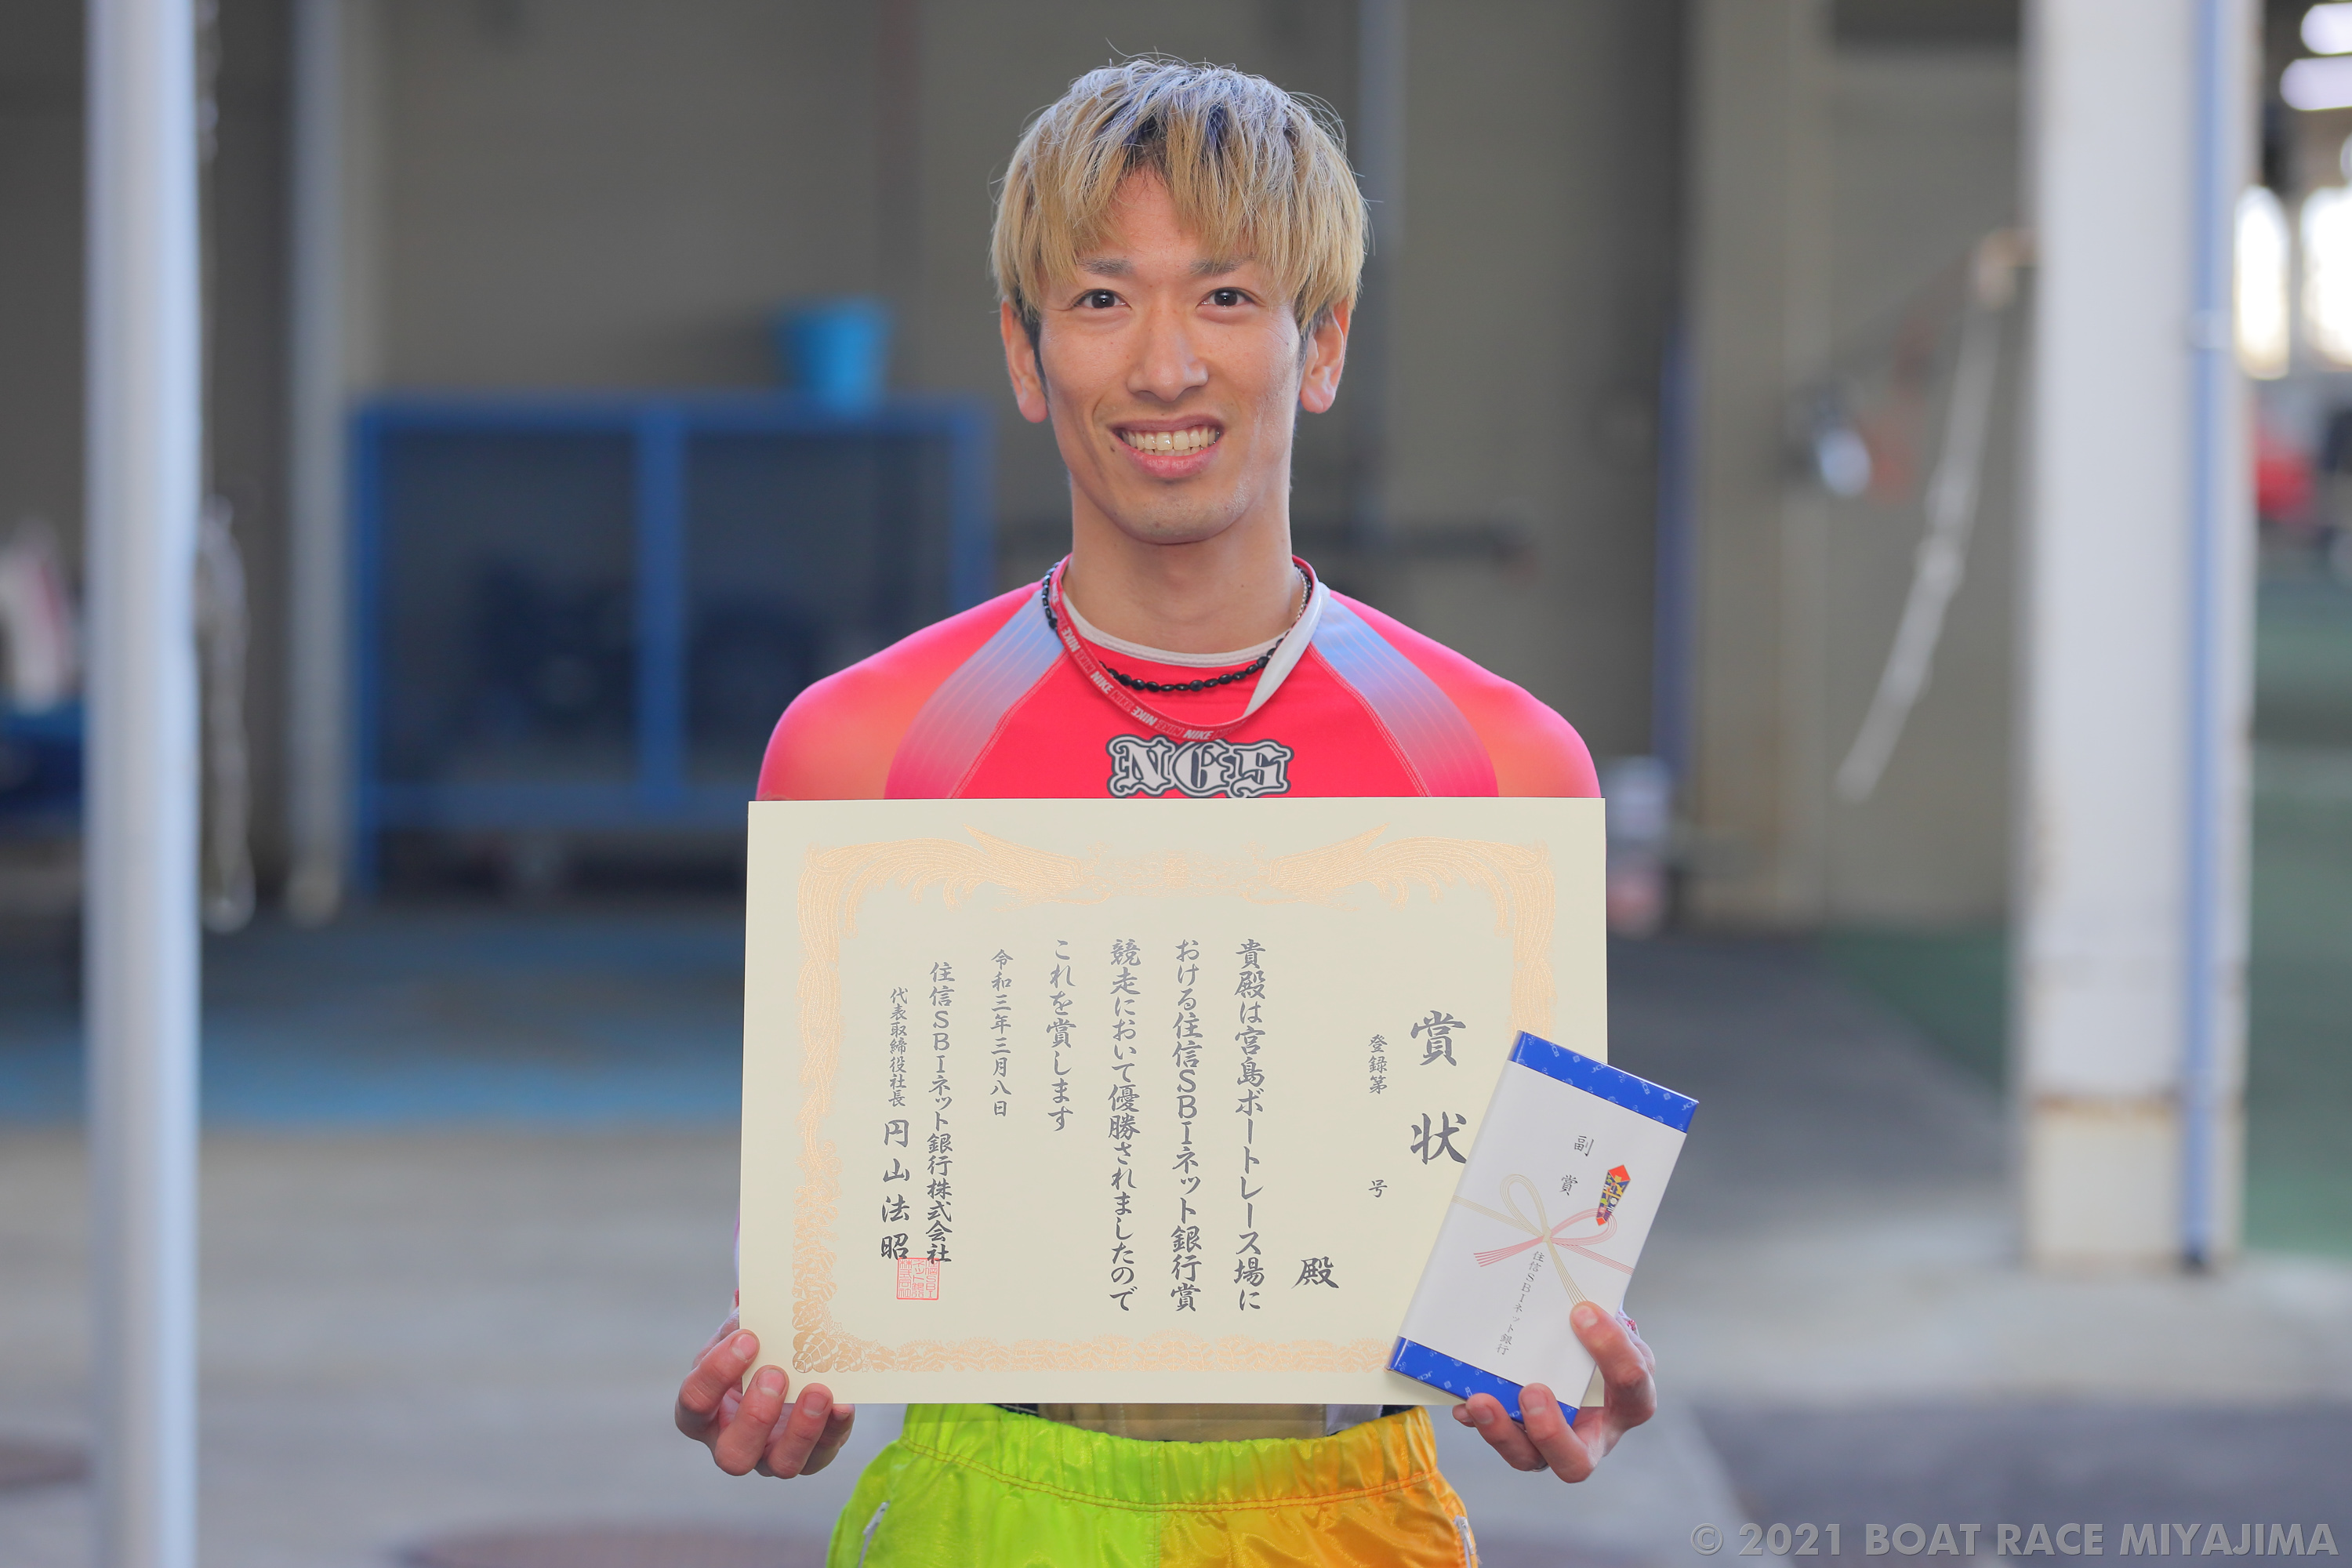 NIKE NIKE NIKE NIKE
NGS
賞状
登録第　号
殿
貴殿は宮島ボートレース場に
おける住信SBIネット銀行賞
競走において優勝されましたので
これを賞します
令和三年三月八日
住信SBIネット銀行株式会社
代表取締役社長 円山法昭
副賞
住信SBIネット銀行
© 2021 BOAT RACE MIYAJIMA